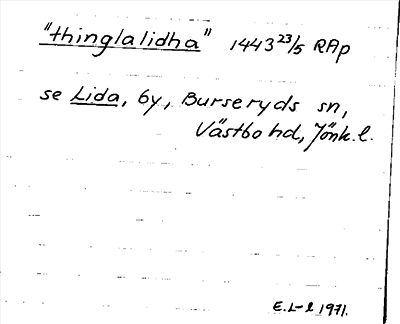 "thinglalidha" 1443 23/5 RAp
se Lida, by, Burseryds sn,
Västbo hd, Jönk.l.
E.L-l 1971.